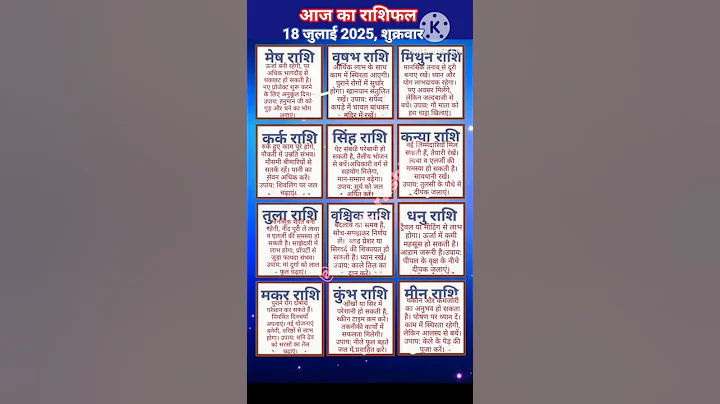 आज का राशिफल
18 जुलाई 2025, शुक्रवार
मेष राशि
ऊर्जा बनी रहेगी, पर
अधिक भागदौड़ से
थकावट हो सकती है।
नए प्रोजेक्ट शुरू करने
के लिए अनुकूल दिन।
उपाय: हनुमान जी को
गुड़ और चने का भोग
लगाएं।
वृषभ राशि
आर्थिक लाभ के साथ
काम में स्थिरता आएगी।
पुराने रोगों में सुधार
होगा। खानपान संतुलित
रखें। उपाय: सफेद
कपड़े में चावल बांधकर
मंदिर में रखें।
मिथुन राशि
मानसिक तनाव से दूरी
बनाए रखें। ध्यान और
योग लाभदायक रहेगा।
नए अवसर मिलेंगे,
लेकिन जल्दबाजी से
बचें। उपाय: गौ माता को
हरा चारा खिलाएं।
कर्क राशि
रुके हुए काम पूरे होंगे,
नौकरी में उन्नति संभव।
मौसमी बीमारियों से
सतर्क रहें। पानी का
सेवन अधिक करें।
उपाय: शिवलिंग पर जल
चढ़ाएं।
सिंह राशि
पेट संबंधी परेशानी हो
सकती है, तैलीय भोजन
से बचें।अधिकारी वर्ग से
सहयोग मिलेगा,
मान-सम्मान बढ़ेगा।
उपाय: सूर्य को जल
अर्पित करें।
कन्या राशि
नई जिम्मेदारियाँ मिल
सकती हैं, तैयारी रखें।
त्वचा व एलर्जी की
समस्या हो सकती है।
सावधानी रखें।
उपाय: तुलसी के पौधे में
दीपक जलाएं।
तुला राशि
मानसिक शांति बनी
रहेगी, नींद पूरी लें त्वचा
व एलर्जी की समस्या हो
सकती है। साझेदारी में
लाभ होगा, प्रॉपर्टी से
जुड़ा फायदा संभव।
उपाय: मां दुर्गा को लाल
फूल चढ़ाएं।
वृश्चिक राशि
बदलाव का समय है,
सोच-समझकर निर्णय
लें। ब्लड प्रेशर या
सिरदर्द की शिकायत हो
सकती है। ध्यान रखें।
उपाय: काले तिल का
दान करें।
धनु राशि
ट्रैवल या मीटिंग से लाभ
होगा। ऊर्जा में कमी
महसूस हो सकती है।
आराम जरूरी है।उपाय:
पीपल के वृक्ष के नीचे
दीपक जलाएं।
मकर राशि
पुराने रोग दोबारा
परेशान कर सकते हैं।
नियमित दिनचर्या
अपनाएं। नई योजनाएं
बनेंगी, वरिष्ठों से लाभ
होगा। उपाय: शनि देव
को सरसों का तेल
चढ़ाएं।
कुंभ राशि
आँखों या सिर में
परेशानी हो सकती है,
स्क्रीन टाइम कम करें।
तकनीकी कार्यों में
सफलता मिलेगी।
उपाय: नीले फूल बहते
जल में प्रवाहित करें।
मीन राशि
थकान और कमजोरी
का अनुभव हो सकता
है। पोषण पर ध्यान दें।
काम में स्थिरता रहेगी,
लेकिन आलस्य से बचें।
उपाय: केले के पेड़ की
पूजा करें।